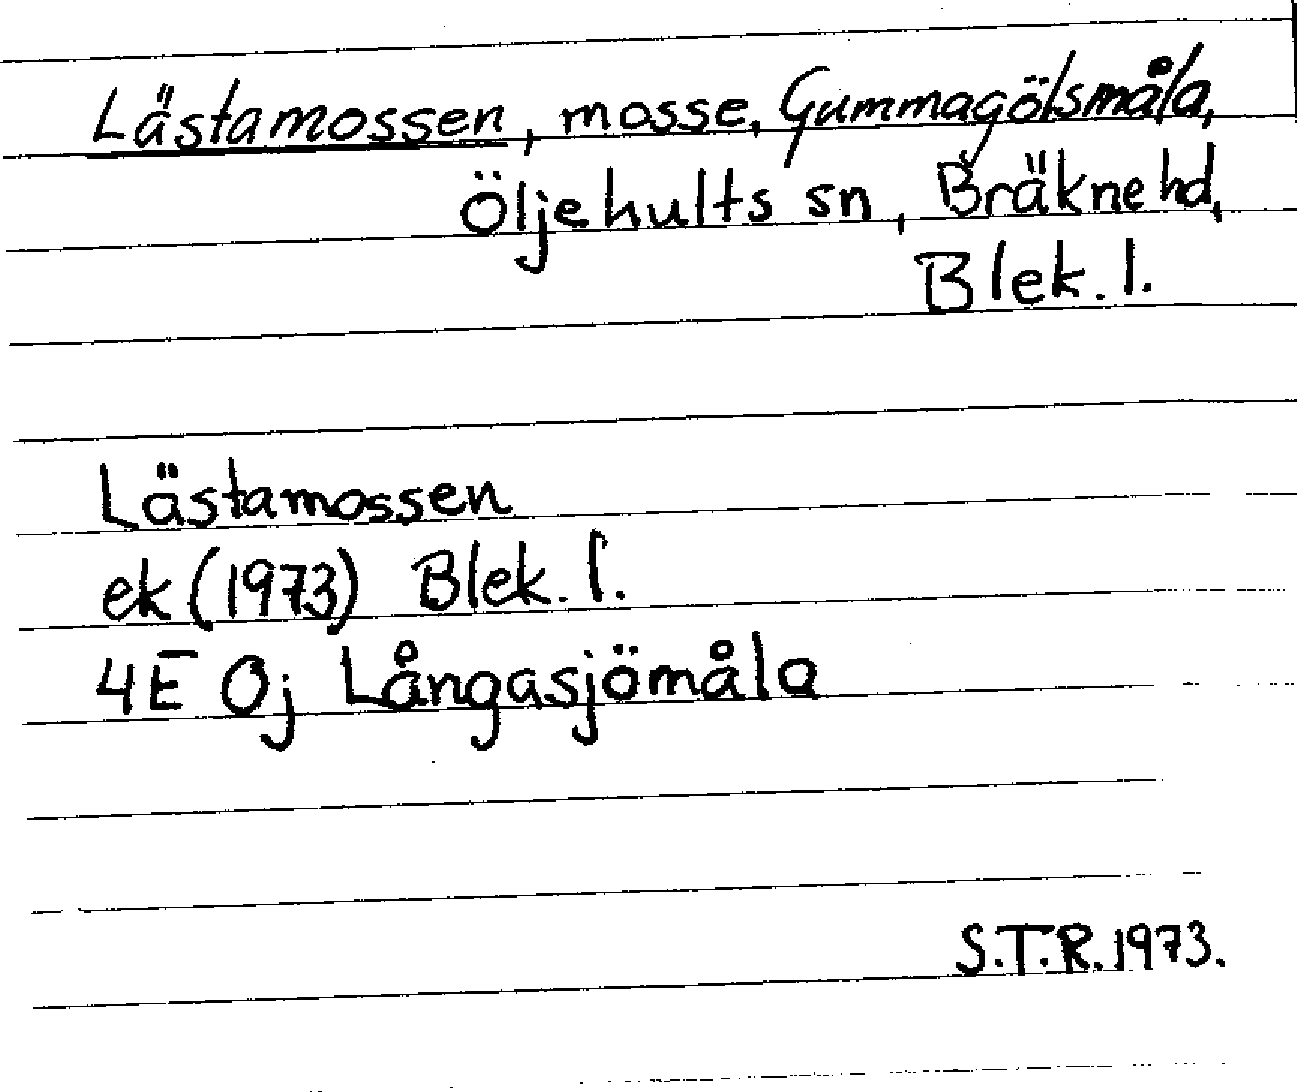 Lästamossen, mosse, Gummagölsmåla,
Öljehults sn, Bräkne hd,
Blek. l.
Lästamossen
ek (1973) Blek. l.
4E 0j Långasjömåla
S.T.R. 1973.